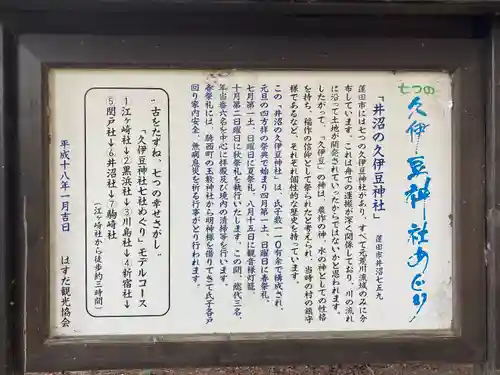 七つの久伊豆神社めぐり
「井沼の久伊豆神社」
蓮田市井沼七五九
蓮田市には七つの久伊豆神社があり、すべて元荒川流域のみに分
布しています。これは舟での運搬が深く関係しており、川の流れ
に沿って土地が開発されていったからではないかと思われます。
したがって「久伊豆」の神は、農作の神、水の神としての性格
を持ち、稲作の信仰として祭られたと考えられ、当時の村の鎮守
様であるなど、それぞれ個性的な歴史を持っています。
この「井沼の久伊豆神社」は、氏子数一一〇有余で構成され、
元旦の四方拝の祭典で始まり四月第一土、日曜日に春祭礼、
七月第一土、日曜日に夏祭礼、八月十五日に観音様灯籠、
十月第二日曜日に秋祭礼を執行いたします。この間、総代三名、
年当番六名を中心に拝殿及び境内の清掃等を行います。
春祭礼には、騎西町の玉敷神社から明神様を借りてきて氏子各戸
回り家内安全、無病息災を祈る行事がとり行われます。
”古をたずね、七つの幸せさがし”
「久伊豆神社七社めぐり」モデルコース
①江ヶ崎社↓②黒浜社↓③川島社↓④新宿社↓
⑤閏戸社↓⑥井沼社↓⑦駒崎社
（江ヶ崎社から徒歩約三時間）
平成十八年一月吉日
はすだ観光協会